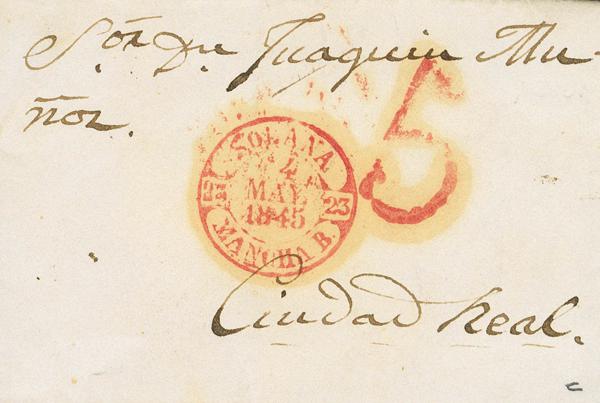 Sor. Dn. Juaquin Mu-
ñoz.
5
SOLANA
4
MAY.
1845
23
MANCHA B.
Ciudad Real.